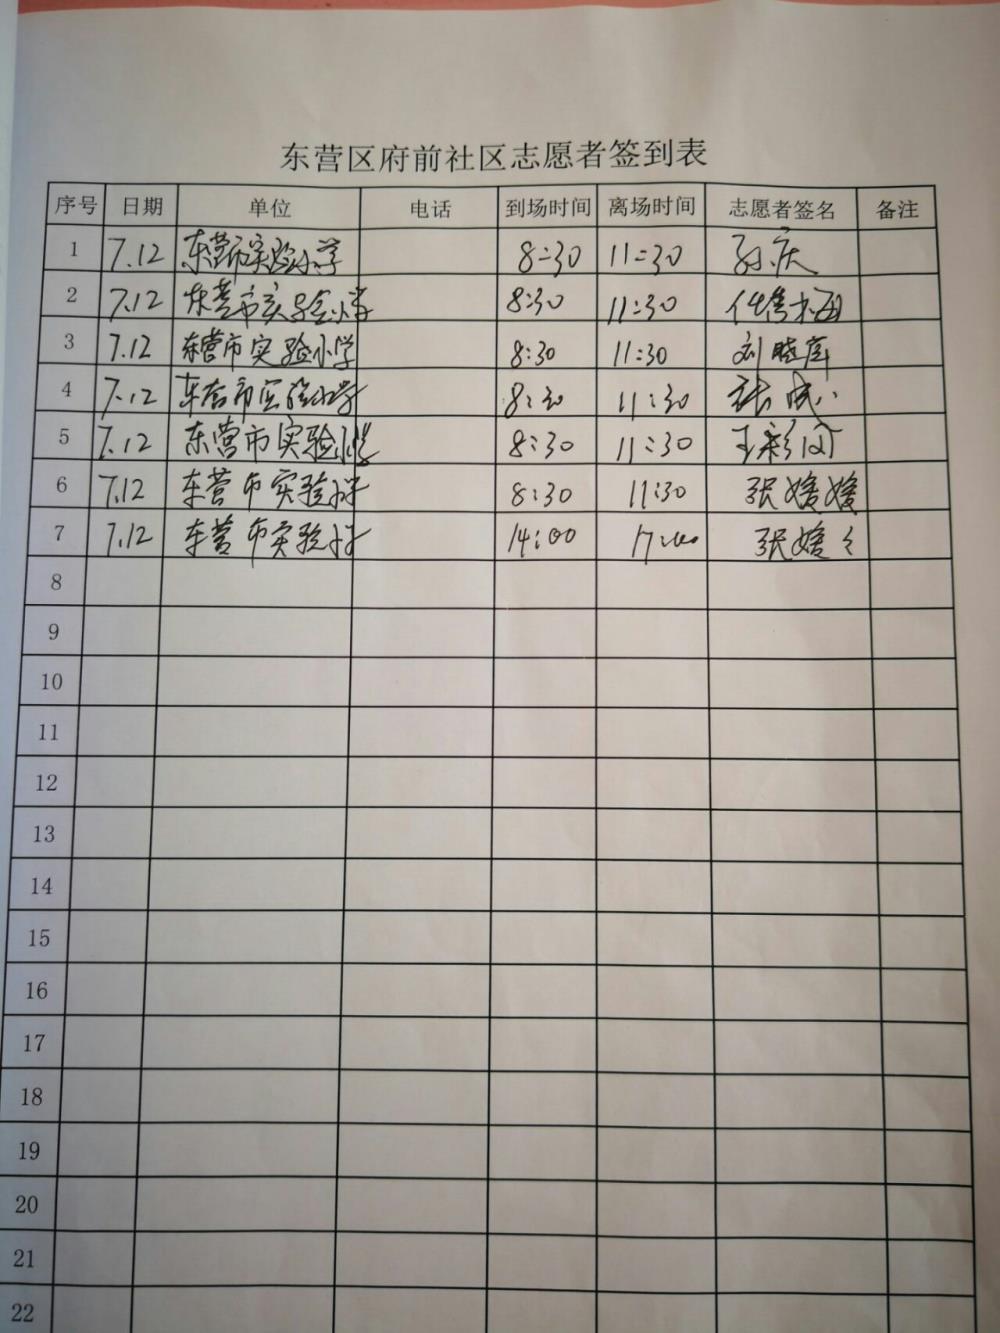 东营区府前社区志愿者签到表
序号 日期 单位 电话 到场时间 离场时间 志愿者签名 备注
1 7.12 东营市实验小学 8:30 11:30 孙庆
2 7.12 东营市实验小学 8:30 11:30
3 7.12 东营市实验小学 8:30 11:30 刘晓萍
4 7.12 东营市实验小学 8:30 11:30 张
5 7.12 东营市实验小学 8:30 11:30 王彩
6 7.12 东营市实验小学 8:30 11:30 张媛媛
7 7.12 东营市实验小学 14:00 17:00 张媛々
8
9
10
11
12
13
14
15
16
17
18
19
20
21
22